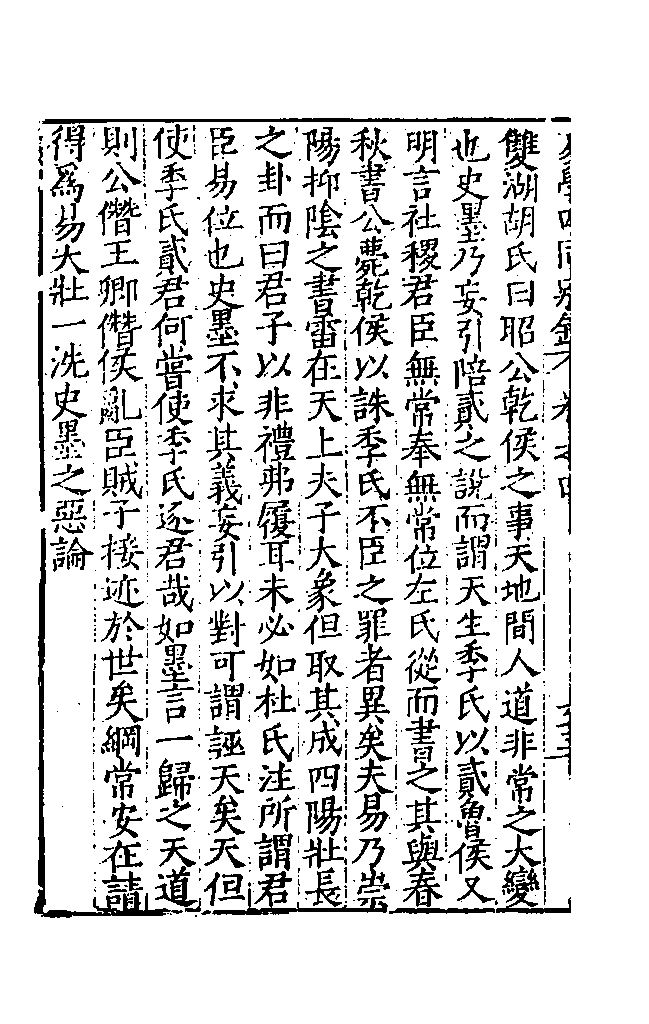 雙湖胡氏曰昭公乾侯之事天地間人道非常之大變
也史墨乃妄引陪貳之說而謂天生季氏以貳魯侯又
明言社稷君臣無常奉無常位左氏從而書之其與春
秋書公薨乾侯以誅季氏不臣之罪者異矣夫易乃崇
陽抑陰之書雷在天上夫子大象但取其成四陽壯長
之卦而曰君子以非禮弗履耳未必如杜氏注所謂君
臣易位也史墨不求其義妄引以對可謂誣天矣天但
使季氏貳君何嘗使季氏逐君哉如墨言一歸之天道
則公僭王卿僭侯亂臣賊子接迹於世矣綱常安在請
得為易大壯一洗史墨之惡論